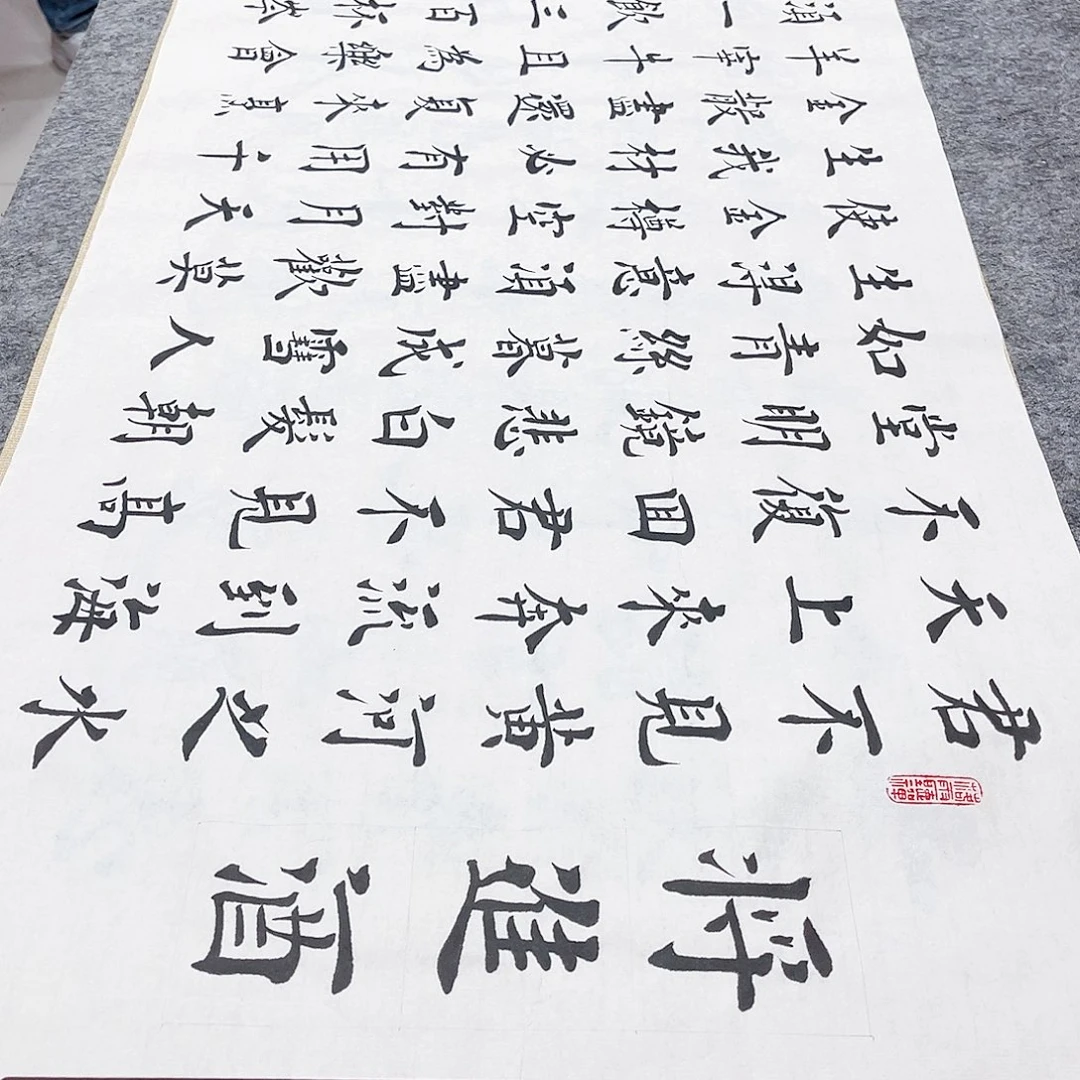 將進酒
君不見黃河之水
天上來奔流到海
不復回君不見高
堂明鏡悲白髮朝
如青絲暮成雪人
生得意須盡歡莫
使金樽空對月天
生我材必有用千
金散盡還復來烹
羊宰牛且為樂會
須一飲三百杯岑